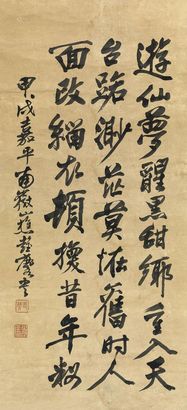 遊仙夢醒黑甜鄉重入天
台路渺茫莫怪舊時人
面改緇衣頓換昔年妝
甲戌嘉平南嶽